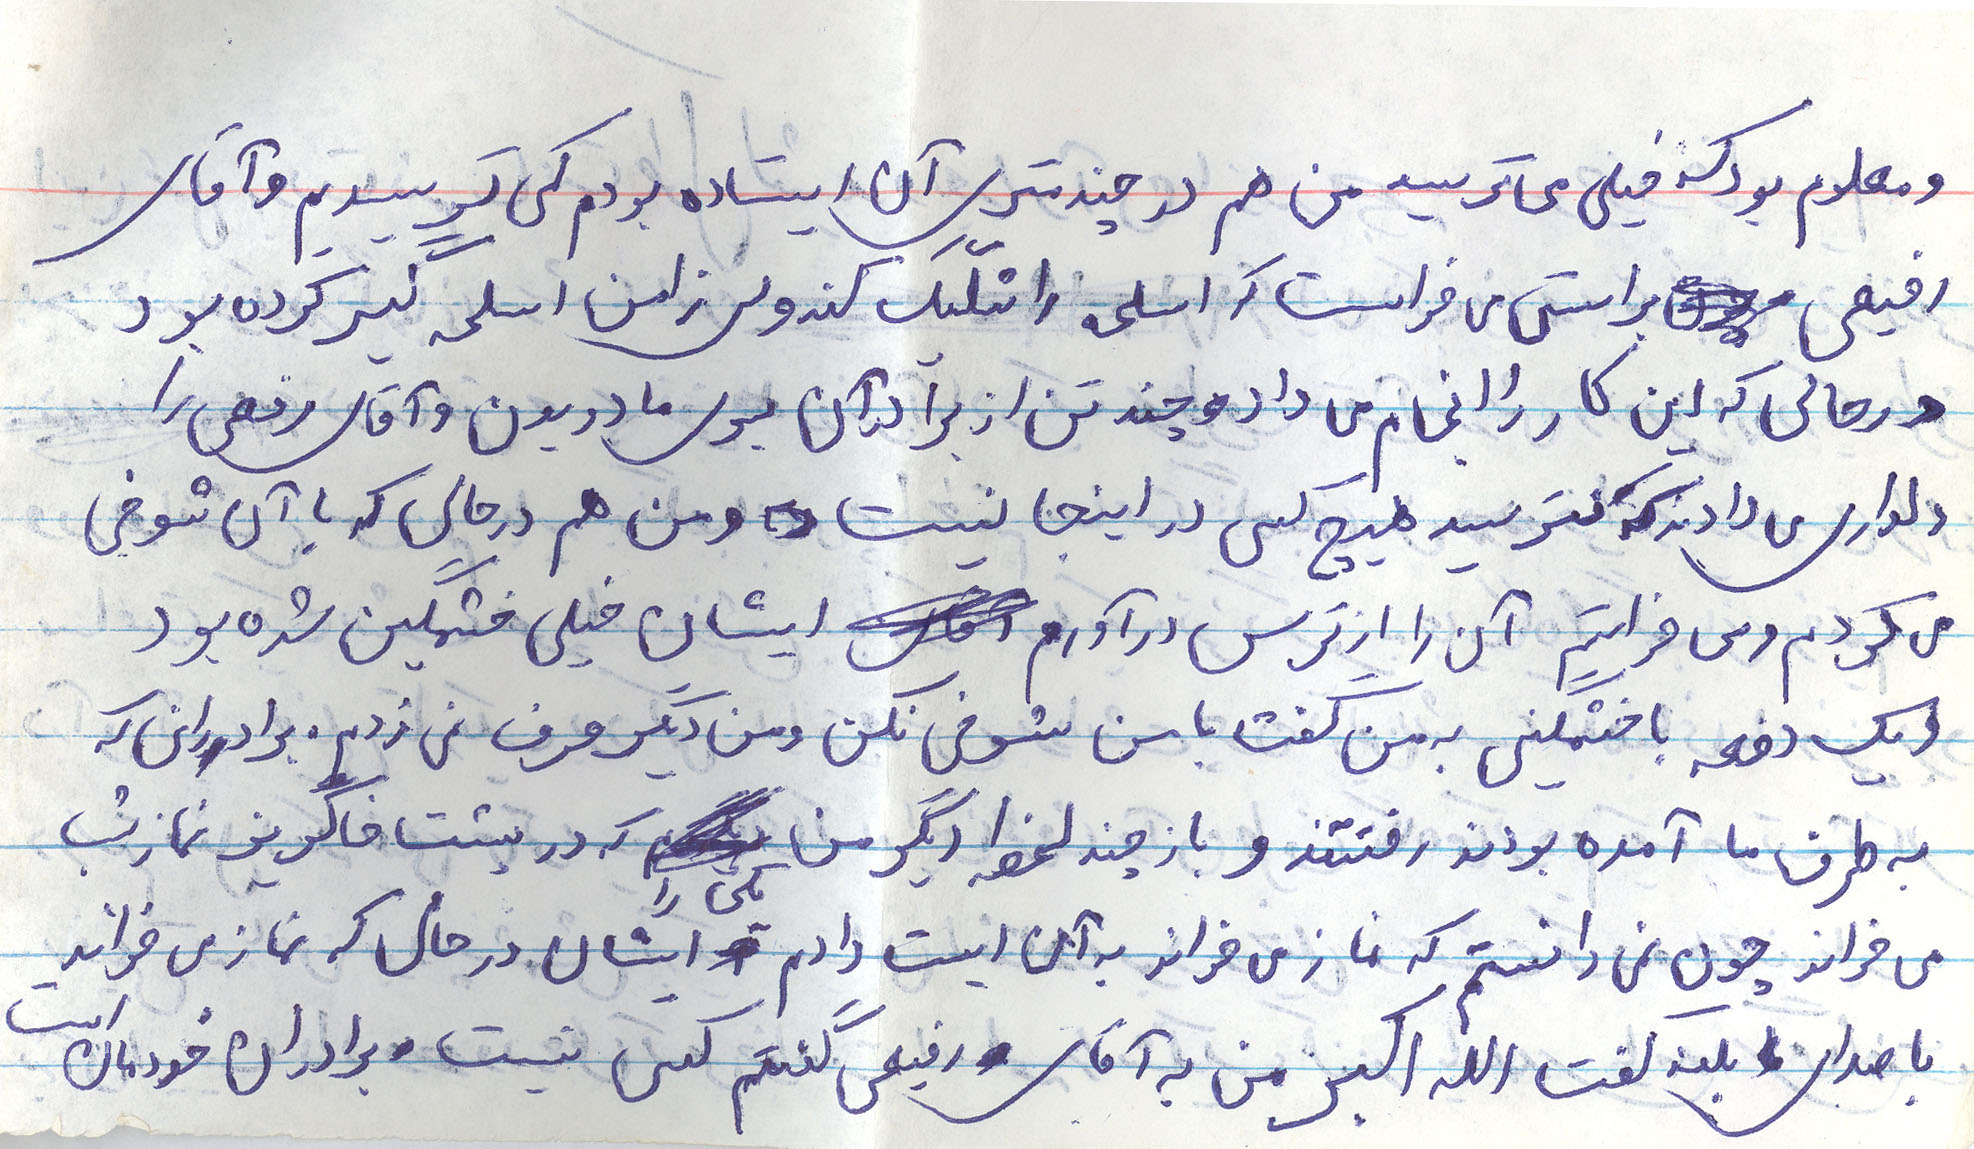 و معلوم بود که خیلی می ترسید من هم در چند متری آن ایستاده بودم کمی ترسیدیم و آقای
رفیعی براستی می خواست که اسلحه را شلیک کند ولی زامن اسلحه گیر کرده بود
درحالی که این کار را انجام می داد چند تن از برادرآن بسوی ما دویدن و آقای رفعی را
دلداری می دادند که نترسید هیچ کسی در اینجا نیست و من هم درحالی که با آن شوخی
می کردم و می خواستم آن را از ترس درآورم ایشان خیلی خشمگین شده بود
و یک دفعه با خشمگینی به من گفت با من شوخی نکن و من دیگر حرف نمی زدم. برادرانی که
به طرف ما آمده بودند رفتند و باز چند لحظه دیگر من یکی را که در پشت خاکریز نماز شب
می خواند چون نمی دانستم که نماز می خواند به آن ایست دادم ایشان درحالی که نماز می خواند
با صدای بلند گفت الله اکبر من به آقای رفیعی گفتم کسی نیست برادران خودمان است